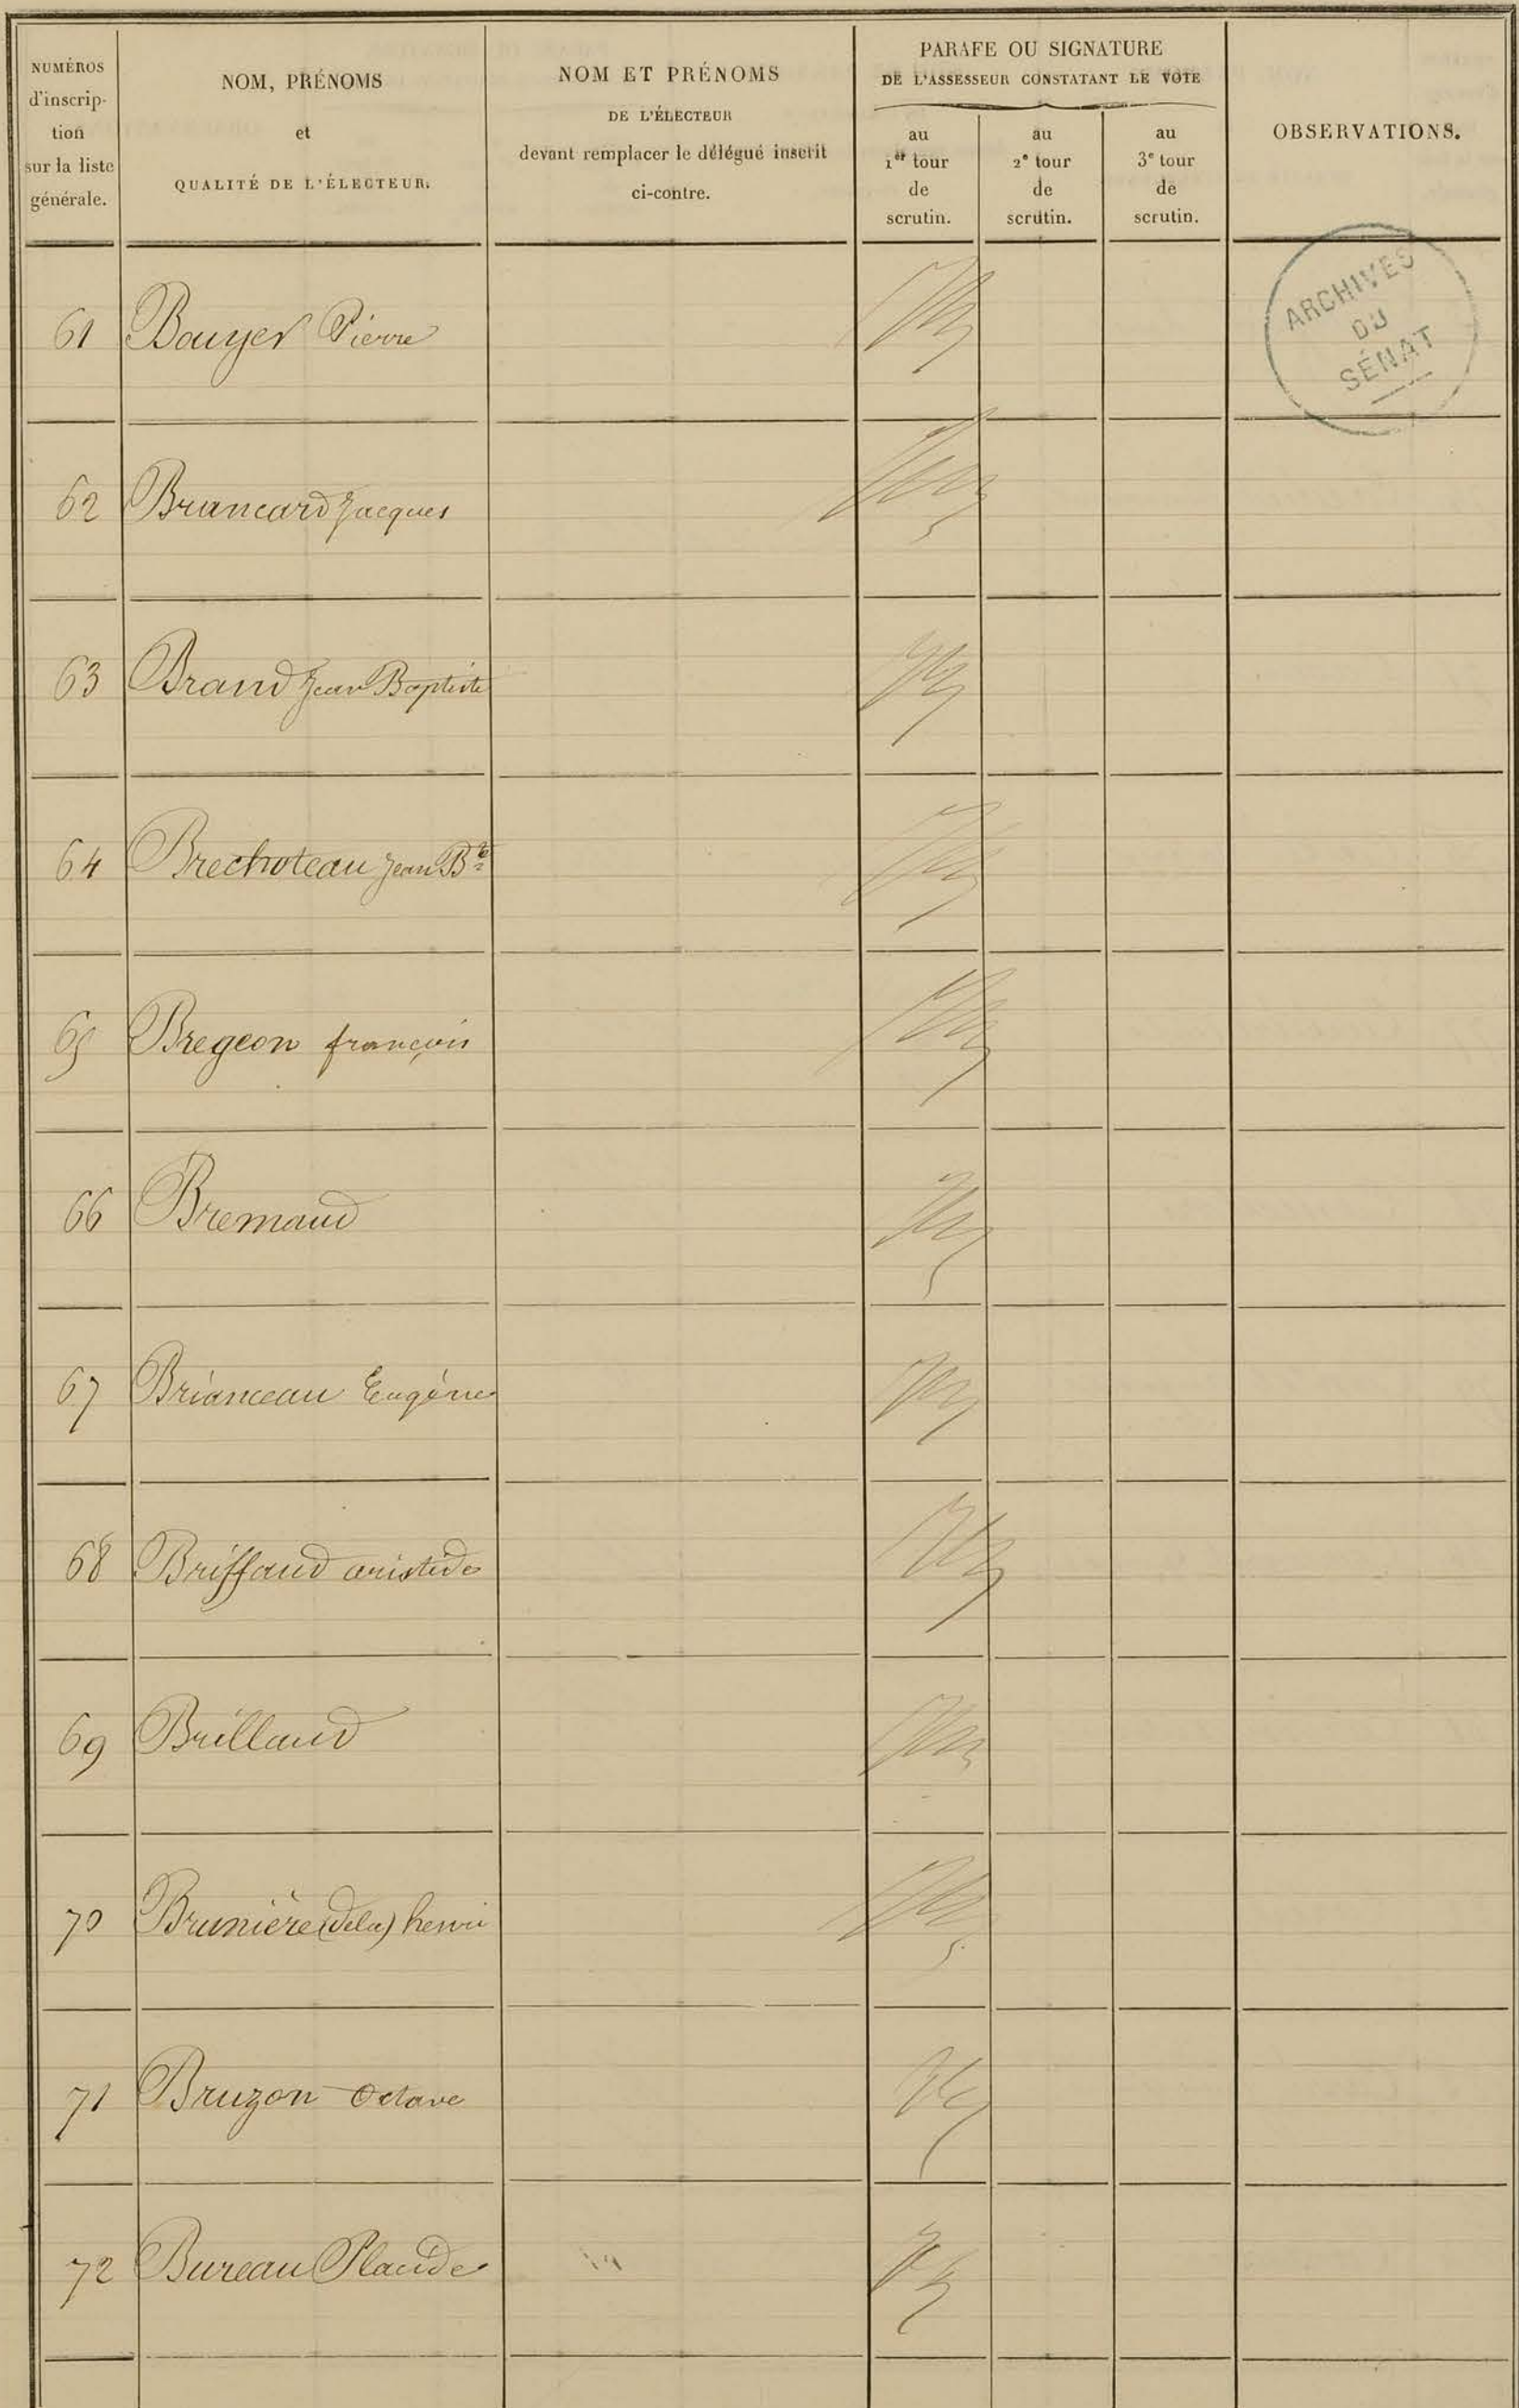 NUMÉROS
d'inscrip-
tion
sur la liste
générale.
NOM, PRÉNOMS
et
QUALITÉ DE L'ÉLECTEUR.
NOM ET PRÉNOMS
DE L'ÉLECTEUR
devant remplacer le délégué inscrit
ci-contre.
PARAFE OU SIGNATURE
DE L'ASSESSEUR CONSTATANT LE VOTE
au
1er tour
de
scrutin.
au
2e tour
de
scrutin.
au
3e tour
de
scrutin.
OBSERVATIONS.
ARCHIVES
DU
SÉNAT
61 Bouyer Pierre
62 Brancard Jacques
63 Brand Jean Baptiste
64 Brechoteau Jean Bte
65 Bregeon françois
66 Bremaud
67 Brianceau Eugène
68 Briffaud aristide
69 Brillaud
70 Brunière (dela) henri
71 Bruzon Octave
72 Bureau Placide